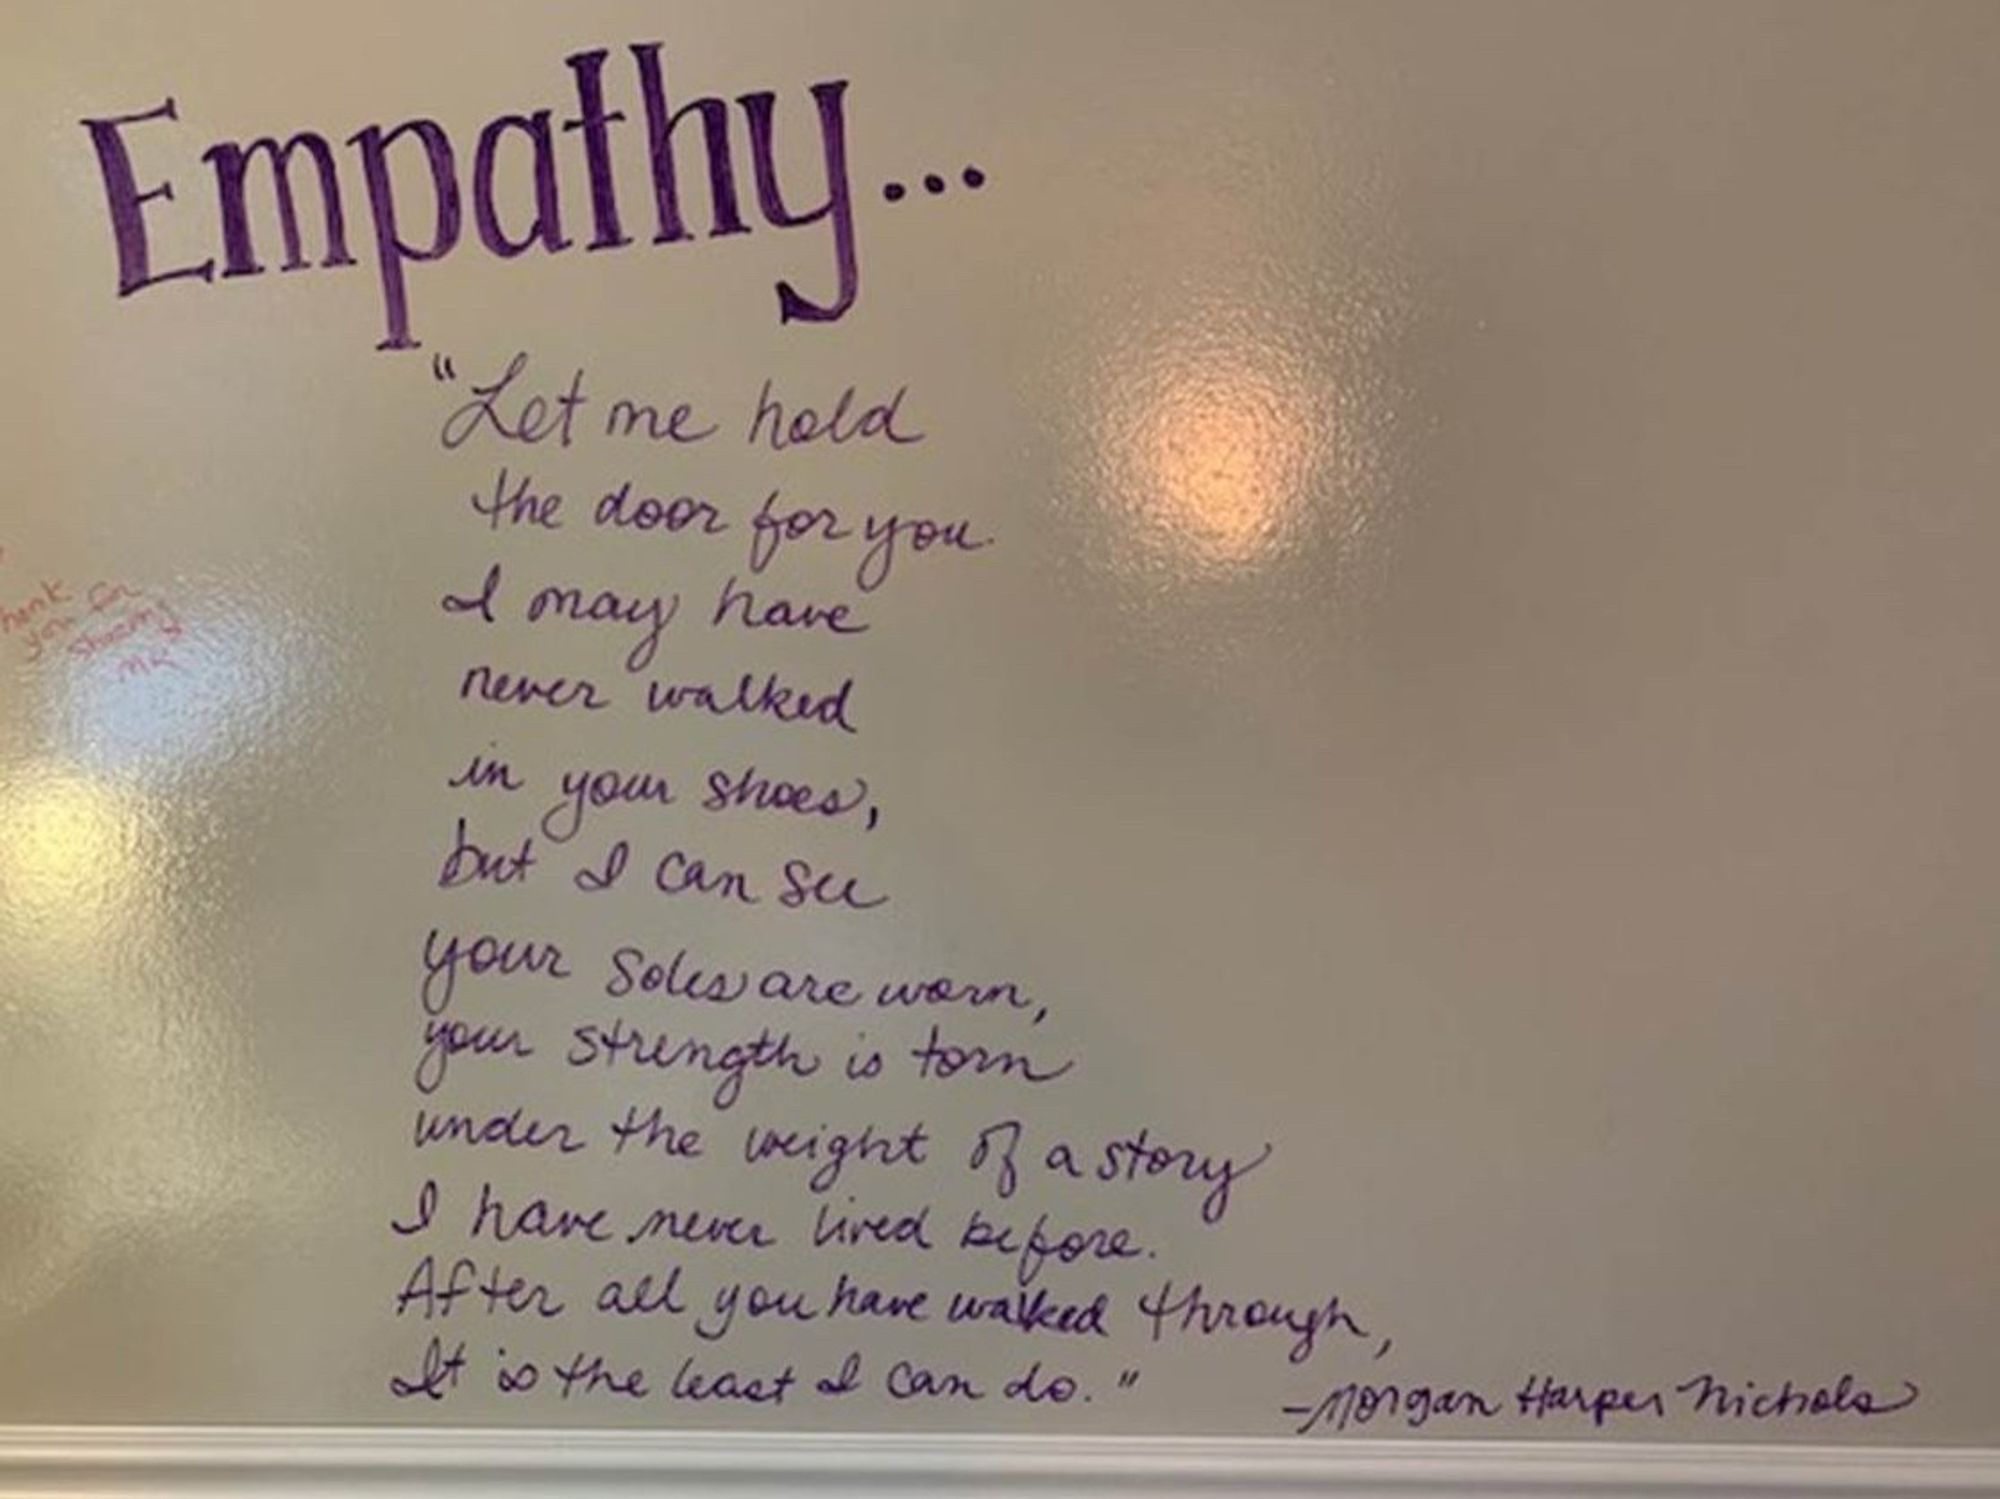 Empathy...
"Let me hold
the door for you.
I may have
never walked
in your shoes,
but I can see
your soles are worn,
your strength is torn
under the weight of a story
I have never lived before.
After all you have walked through,
It is the least I can do."
-Morgan Harper Nichols
hank for
you
sharing
MK